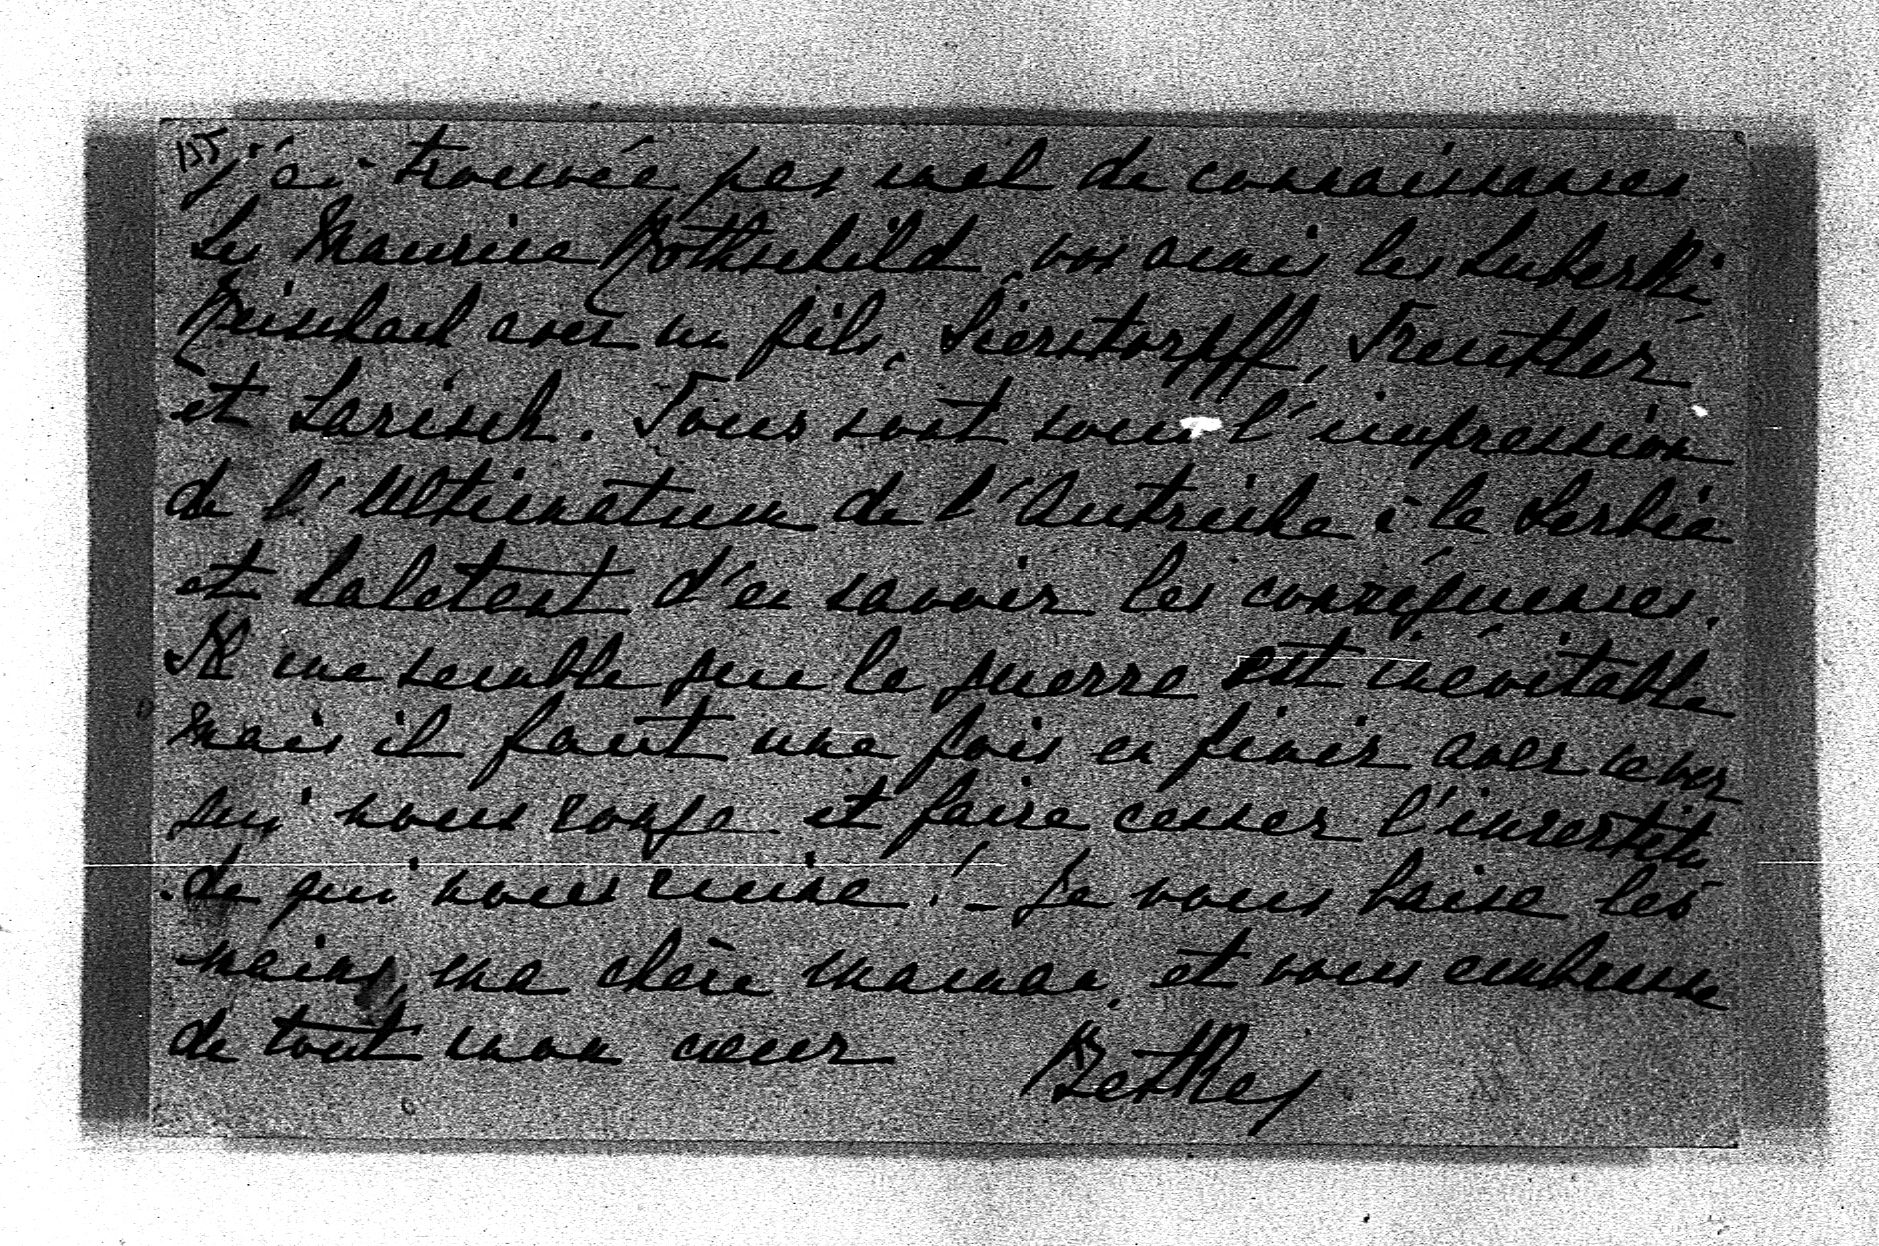 155
j'ai trouvée pas mal de connaissances
les Maurice Rothschild, vos amis les Luberski
Reischach avec un fils, Sierstorpff, Treutler
et Larisch. Tous sont sous l'impression
de l'Ultimatum de l'Autriche à la Serbie
et haletent d'en savoir les conséquences.
Il me semble que la guerre est inévitable
mais il faut une fois en finir avec ce ver
qui nous ronge et faire cesser l'incertitu
de qui nous ruine! – Je vous baise les
mains, ma chère maman, et vous embrasse
de tout mon cœur